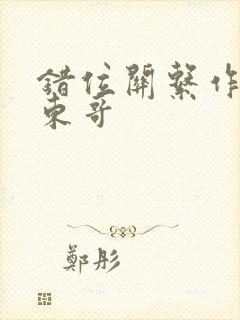 錯位關繫作
東哥
鄭彤